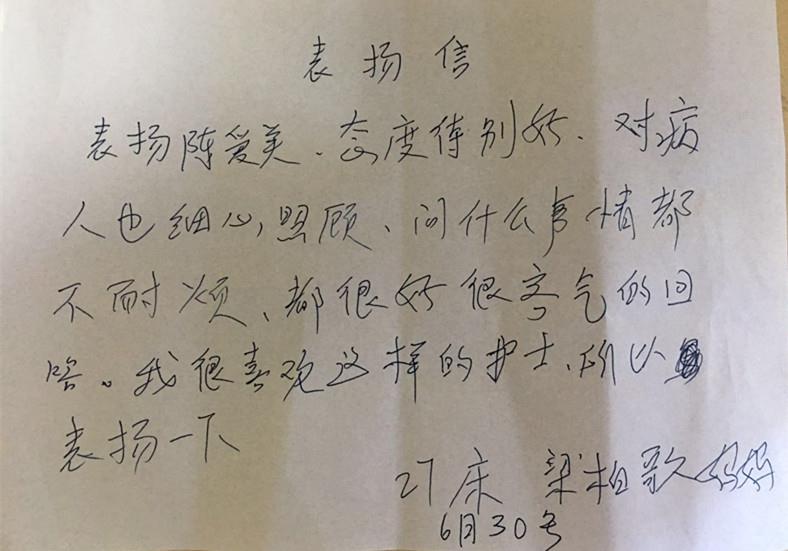 表扬信
表扬陈爱美、态度待别好、对病
人也细心照顾、问什么事情都
不耐烦、都很好很客气的回
答。我很喜欢这样的护士、所以
表扬一下
27床 梁柏歌妈妈
6月30号